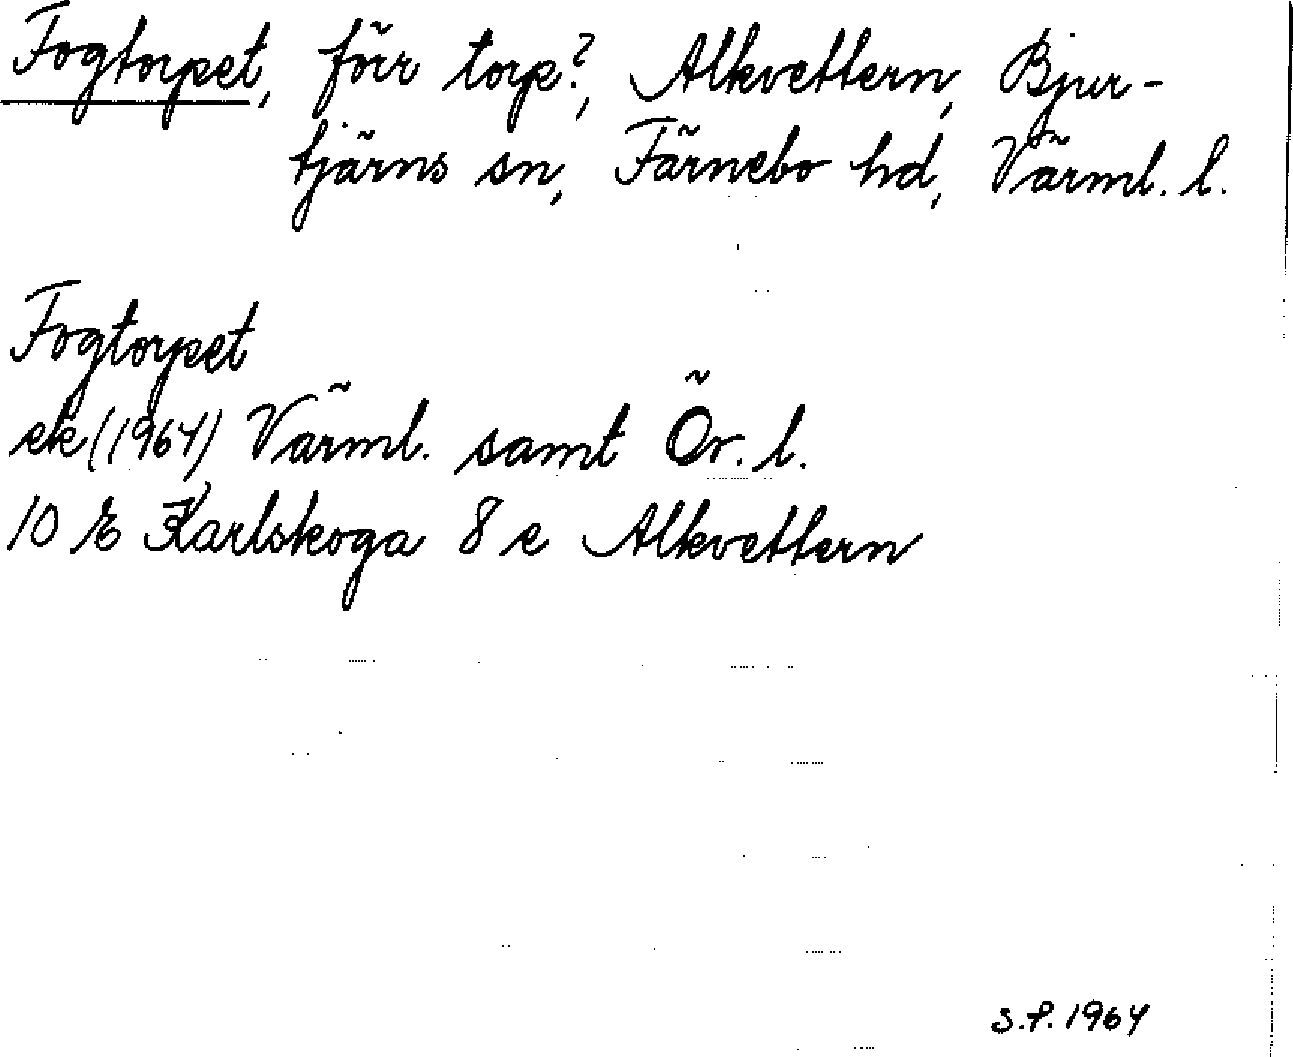 Fogtorpet, förr torp?, Alkvettern, Bjur-
tjärns sn, Färnebo hd, Värml. l.
Fogtorpet
ek (1964) Värml. samt Ör. l.
10 E Karlskoga 8 e Alkvettern
S.P. 1964